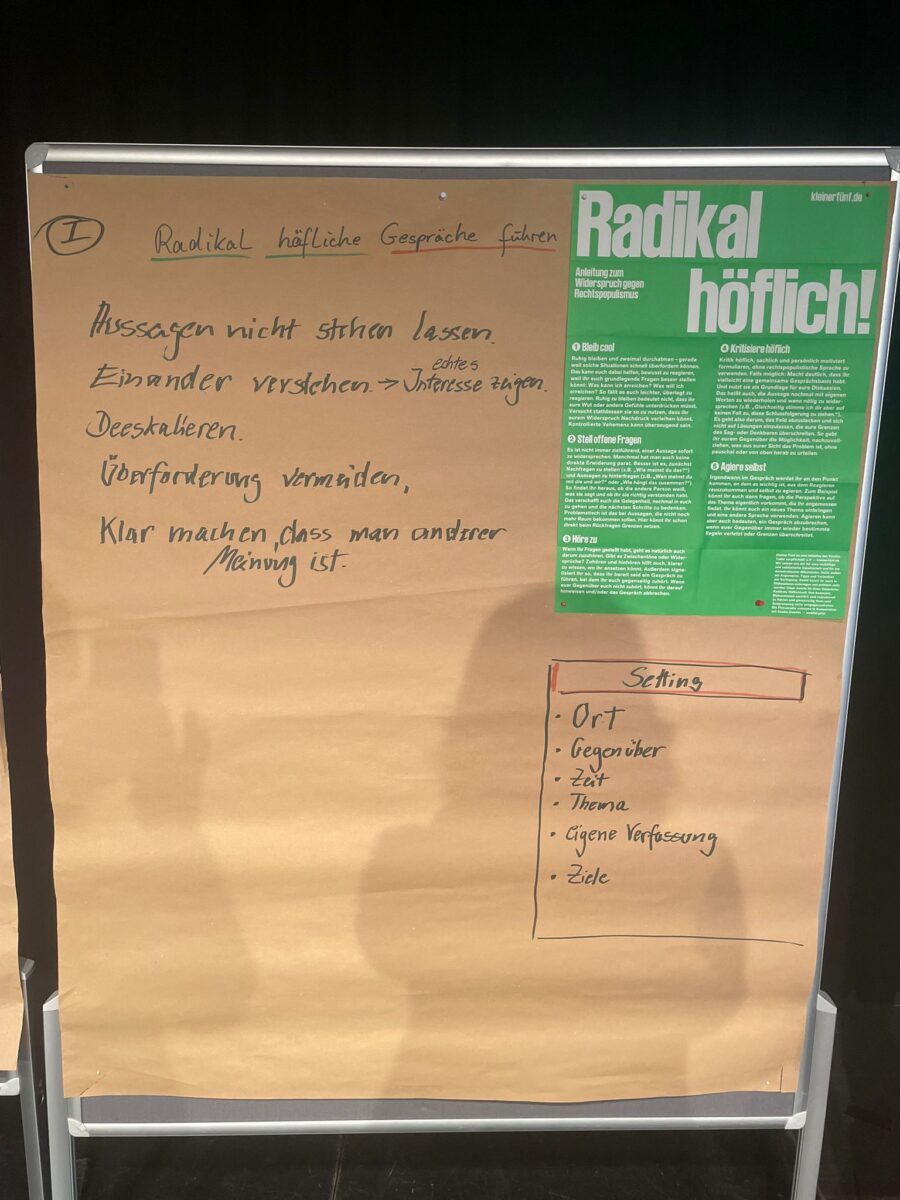 I
Radikal höfliche Gespräche führen
Aussagen nicht stehen lassen.
echtes
Einander verstehen. → Interesse zeigen.
Deeskalieren.
Überforderung vermeiden,
Klar machen, dass man anderer
Meinung ist.
kleinerfünf.de
Radikal
höflich!
Anleitung zum
Widerspruch gegen
Rechtspopulismus
1 Bleib cool
Ruhig bleiben und zweimal durchatmen – gerade
weil solche Situationen schnell überfordern können.
Das kann auch dabei helfen, bewusst zu reagieren,
weil ihr euch grundlegende Fragen besser stellen
könnt: Was kann ich erreichen? Was will ich
erreichen? So fällt es auch leichter, überlegt zu
reagieren. Ruhig zu bleiben bedeutet nicht, dass ihr
eure Wut oder andere Gefühle unterdrücken müsst.
Versucht stattdessen sie so zu nutzen, dass ihr
eurem Widerspruch Nachdruck verleihen könnt.
Kontrollierte Vehemenz kann überzeugend sein.
2 Stell offene Fragen
Es ist nicht immer zielführend, einer Aussage sofort
zu widersprechen. Manchmal hat man auch keine
direkte Erwiderung parat. Besser ist es, zunächst
Nachfragen zu stellen (z.B. „Wie meinst du das?“)
und Aussagen zu hinterfragen (z.B. „Wen meinst du
mit die und wir?“ oder „Wie hängt das zusammen?“).
So findet ihr heraus, ob die andere Person weiß,
was sie sagt und ob ihr sie richtig verstanden habt.
Das verschafft euch die Gelegenheit, nochmal in euch
zu gehen und die nächsten Schritte zu bedenken.
Problematisch ist das bei Aussagen, die nicht noch
mehr Raum bekommen sollen. Hier könnt ihr schon
direkt beim Rückfragen Grenzen setzen.
3 Höre zu
Wenn ihr Fragen gestellt habt, geht es natürlich auch
darum zuzuhören. Gibt es Zwischentöne oder Wider-
sprüche? Zuhören und hinhören hilft euch, klarer
zu wissen, wo ihr ansetzen könnt. Außerdem signa-
lisiert ihr so, dass ihr bereit seid ein Gespräch zu
führen, bei dem ihr euch gegenseitig zuhört. Wenn
euer Gegenüber euch nicht zuhört, könnt ihr darauf
hinweisen und/oder das Gespräch abbrechen.
4 Kritisiere höflich
Kritik höflich, sachlich und persönlich motiviert
formulieren, ohne rechtspopulistische Sprache zu
verwenden. Falls möglich: Macht deutlich, dass ihr
vielleicht eine gemeinsame Gesprächsbasis habt.
Und nutzt sie als Grundlage für eure Diskussion.
Das heißt auch, die Aussage nochmal mit eigenen
Worten zu wiederholen und wenn nötig zu wider-
sprechen (z.B. „Gleichzeitig stimme ich dir aber auf
keinen Fall zu, diese Schlussfolgerung zu ziehen.“).
Es geht also darum, das Feld abzustecken und sich
nicht auf Lösungen einzulassen, die eure Grenzen
des Sag- oder Denkbaren überschreiten. So gebt
ihr eurem Gegenüber die Möglichkeit, nachzuvoll-
ziehen, was aus eurer Sicht das Problem ist, ohne
pauschal oder von oben herab zu urteilen.
5 Agiere selbst
Irgendwann im Gespräch werdet ihr an den Punkt
kommen, an dem es wichtig ist, aus dem Reagieren
rauszukommen und selbst zu agieren. Zum Beispiel
könnt ihr euch dann fragen, ob die Perspektive auf
das Thema eigentlich vorkommt, die ihr angemessen
findet. Ihr könnt auch ein neues Thema einbringen
und eine andere Sprache verwenden. Agieren kann
aber auch bedeuten, ein Gespräch abzubrechen,
wenn euer Gegenüber immer wieder bestimmte
Regeln verletzt oder Grenzen überschreitet.
Setting
• Ort
• Gegenüber
• Zeit
• Thema
• Eigene Verfassung
• Ziele